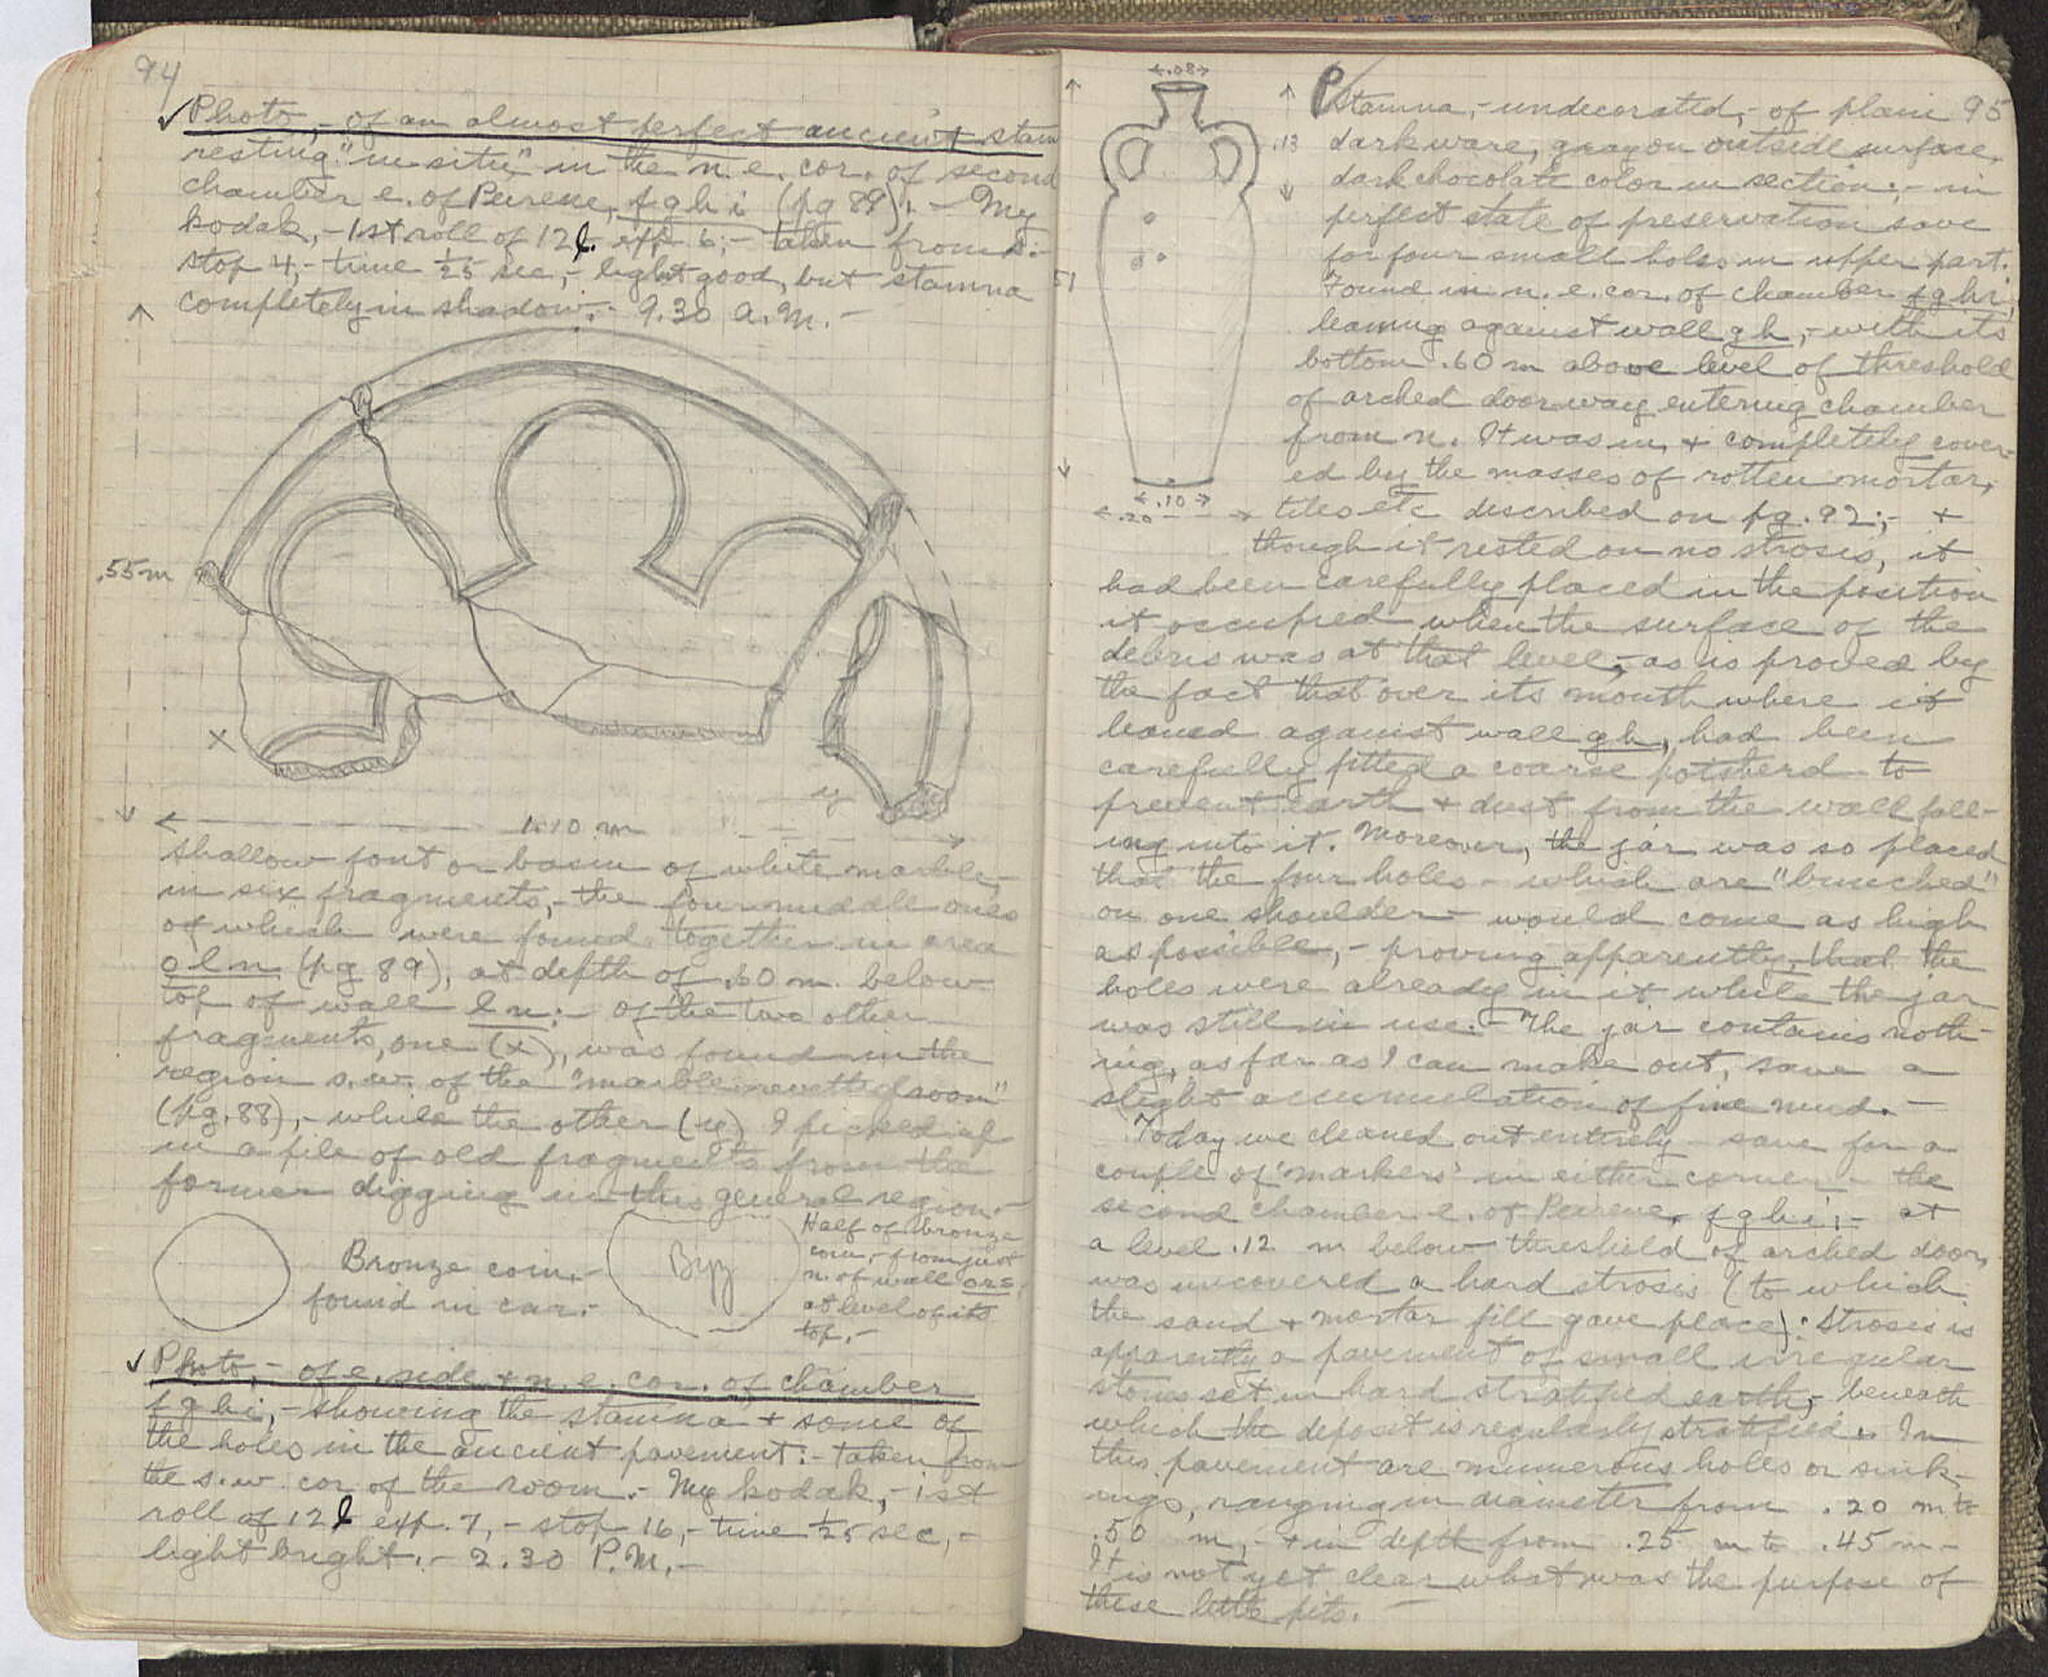 94
Photo,- of an almost perfect ancient stam
resting "in situ" in the n.e. cor. of second
chamber e. of Peirene, f g h i (pg 89).- My
kodak,- 1st roll of 12 l. exp. 6;- taken from s:-
stop 4,- time 1/25 sec,- light good, but stamna
completely in shadow.- 9.30 A.M.-
.55 m
x
y
1.10 m
shallow font or basin of white marble,-
in six fragments,- the four middle ones
of which were found together in area
o l n (pg 89), at depth of .60 m. below
top of wall l n:- of the two other
fragments, one (x), was found in the
region s.w. of the "marble revetted room"
(pg. 88),- while the other (y) I picked up
in a pile of old fragments from the
former digging in this general region.-
Bronze coin,-
found in car.-
Byz
Half of bronze
coin,- from just
n. of wall ors,
at level of its
top.-
Photo,- of e. side + n.e. cor. of chamber
f g h i,- showing the stamna + some of
the holes in the ancient pavement:- taken from
the s.w. cor. of the room.- My kodak,- 1st
roll of 12 l exp. 7,- stop 16,- time 1/25 sec,-
light bright.- 2.30 P.M.-
.08
.13
51
.10
.20
95
P
Stamna,- undecorated,- of plain
dark ware, gray on outside surface,
dark chocolate color in section;- in
perfect state of preservation save
for four small holes in upper part.
Found in n.e. cor. of chamber f g h i,
leaning against wall g h,- with its
bottom .60 m above level of threshold
of arched doorway entering chamber
from n. It was in, + completely cover-
ed by the masses of rotten mortar,
tiles etc described on pg. 92;- +
though it rested on no strosis, it
had been carefully placed in the position
it occupied when the surface of the
debris was at that level,- as is proved by
the fact that over its mouth where it
leaned against wall g h, had been
carefully fitted a coarse potsherd to
prevent earth + dust from the wall fall-
ing into it. Moreover, the jar was so placed
that the four holes - which are "bunched"
on one shoulder - would come as high
as possible,- proving apparently, that the
holes were already in it while the jar
was still in use.- The jar contains noth-
ing, as far as I can make out, save a
slight accumulation of fine mud.-
Today we cleaned out entirely - save for a
couple of 'markers' in either corner - the
second chamber e. of Peirene, f g h i;- at
a level .12 m below threshold of arched door,
was uncovered a hard strosis (to which
the sand + mortar fill gave place): Strosis is
apparently a pavement of small irregular
stones set in hard stratified earth,- beneath
which the deposit is regularly stratified. In
this pavement are numerous holes or sink-
ings, ranging in diameter from .20 m to
.50 m,- + in depth from .25 m to .45 m-
It is not yet clear what was the purpose of
these little pits.-